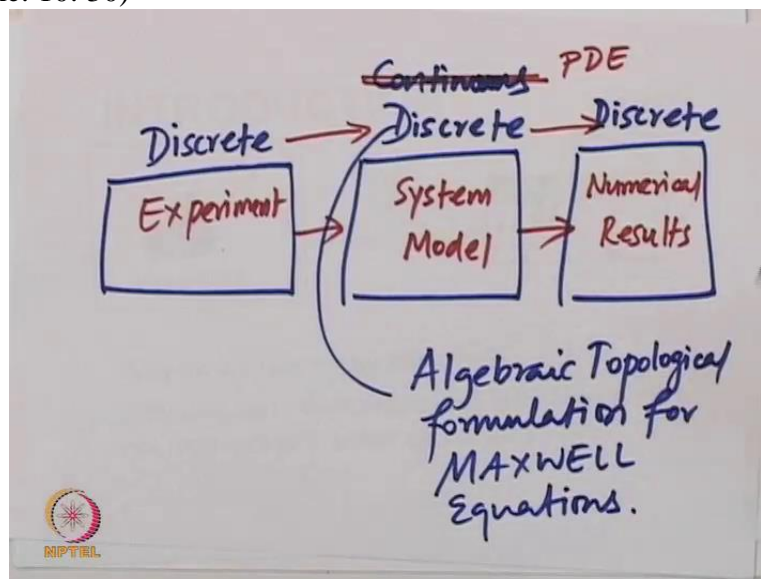 Continuous PDE
Discrete Discrete Discrete
Experiment System Model Numerical Results
Algebraic Topological
formulation for
MAXWELL
Equations.
NPTEL